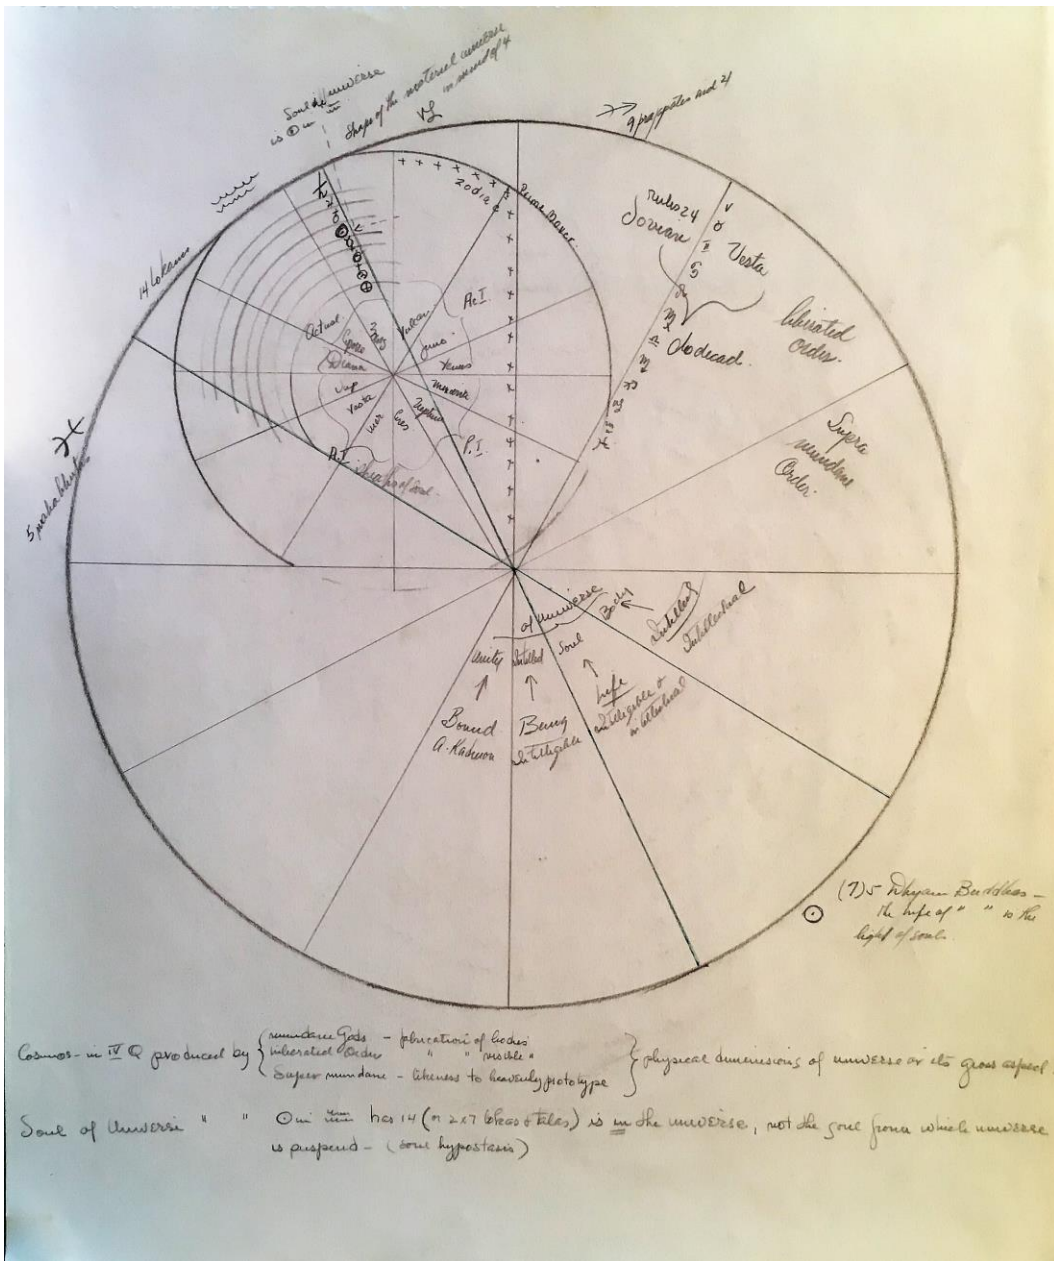 Soul of universe
is ☉ in ♒
Shape of the material universe
in mind of 4
♑
9 and 21
♒
14 lokams
♓
zodiac
Prime Mover
rules 24
Jovian
Vesta
dodecad.
liberated
Order.
Supra
mundane
Order.
Actual
Mars
Vulcan
Ac I.
Juno
Diana
Venus
Jup
Mercury
Vesta
Ceres
Neptune
P.I.
of universe
Unity
Intellect
Soul
Body
Intellect
Intellectual
Life
Intelligible &
intellectual
Bound
A. Kadmon
Being
Intelligible
(7) 5 Dhyani Buddhas –
the life of " " is the
light of souls.
☉
Cosmos – in IV Q produced by
mundane Gods – fabrication of bodies
liberated Order " " mobile "
Super mundane – likeness to heavenly prototype
physical dimensions of universe or its gross aspect
Soul of Universe " " ☉ in ♒ has 14 (or 2x7 lokas & talas) is in the universe, not the soul from which universe
is suspend – (soul hypostasis)